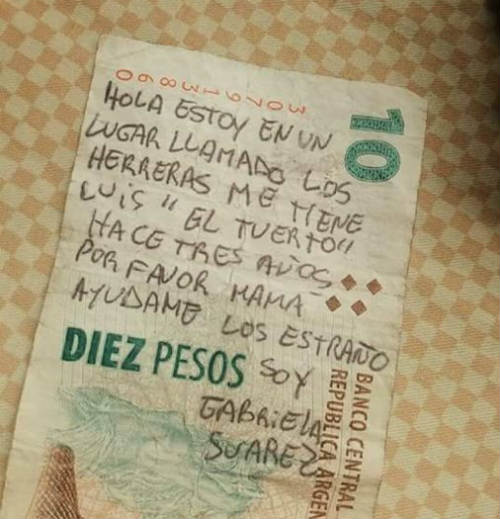 30791386O
10
HOLA ESTOY EN UN
LUGAR LLAMADO LOS
HERRERAS ME TIENE
LUIS "EL TUERTO"
HACE TRES AÑOS
POR FAVOR MAMÁ
AYUDAME LOS ESTRAÑO
DIEZ PESOS
SOY
GABRIELA
SUAREZ
BANCO CENTRAL
REPUBLICA ARGEN